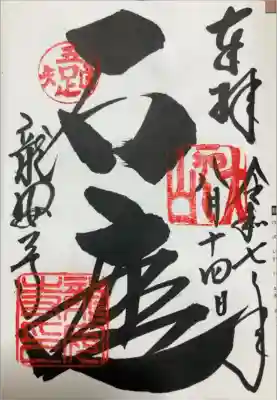 奉拝
令和七年
八月十四日
石庭
吾唯足知
龍安寺